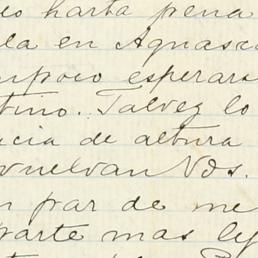 eo harta pena
la en Aguasca
mpoco esperara
tino. Talvez lo
cia de altura
vuelvan Vds.
n par de me
parte mas ly